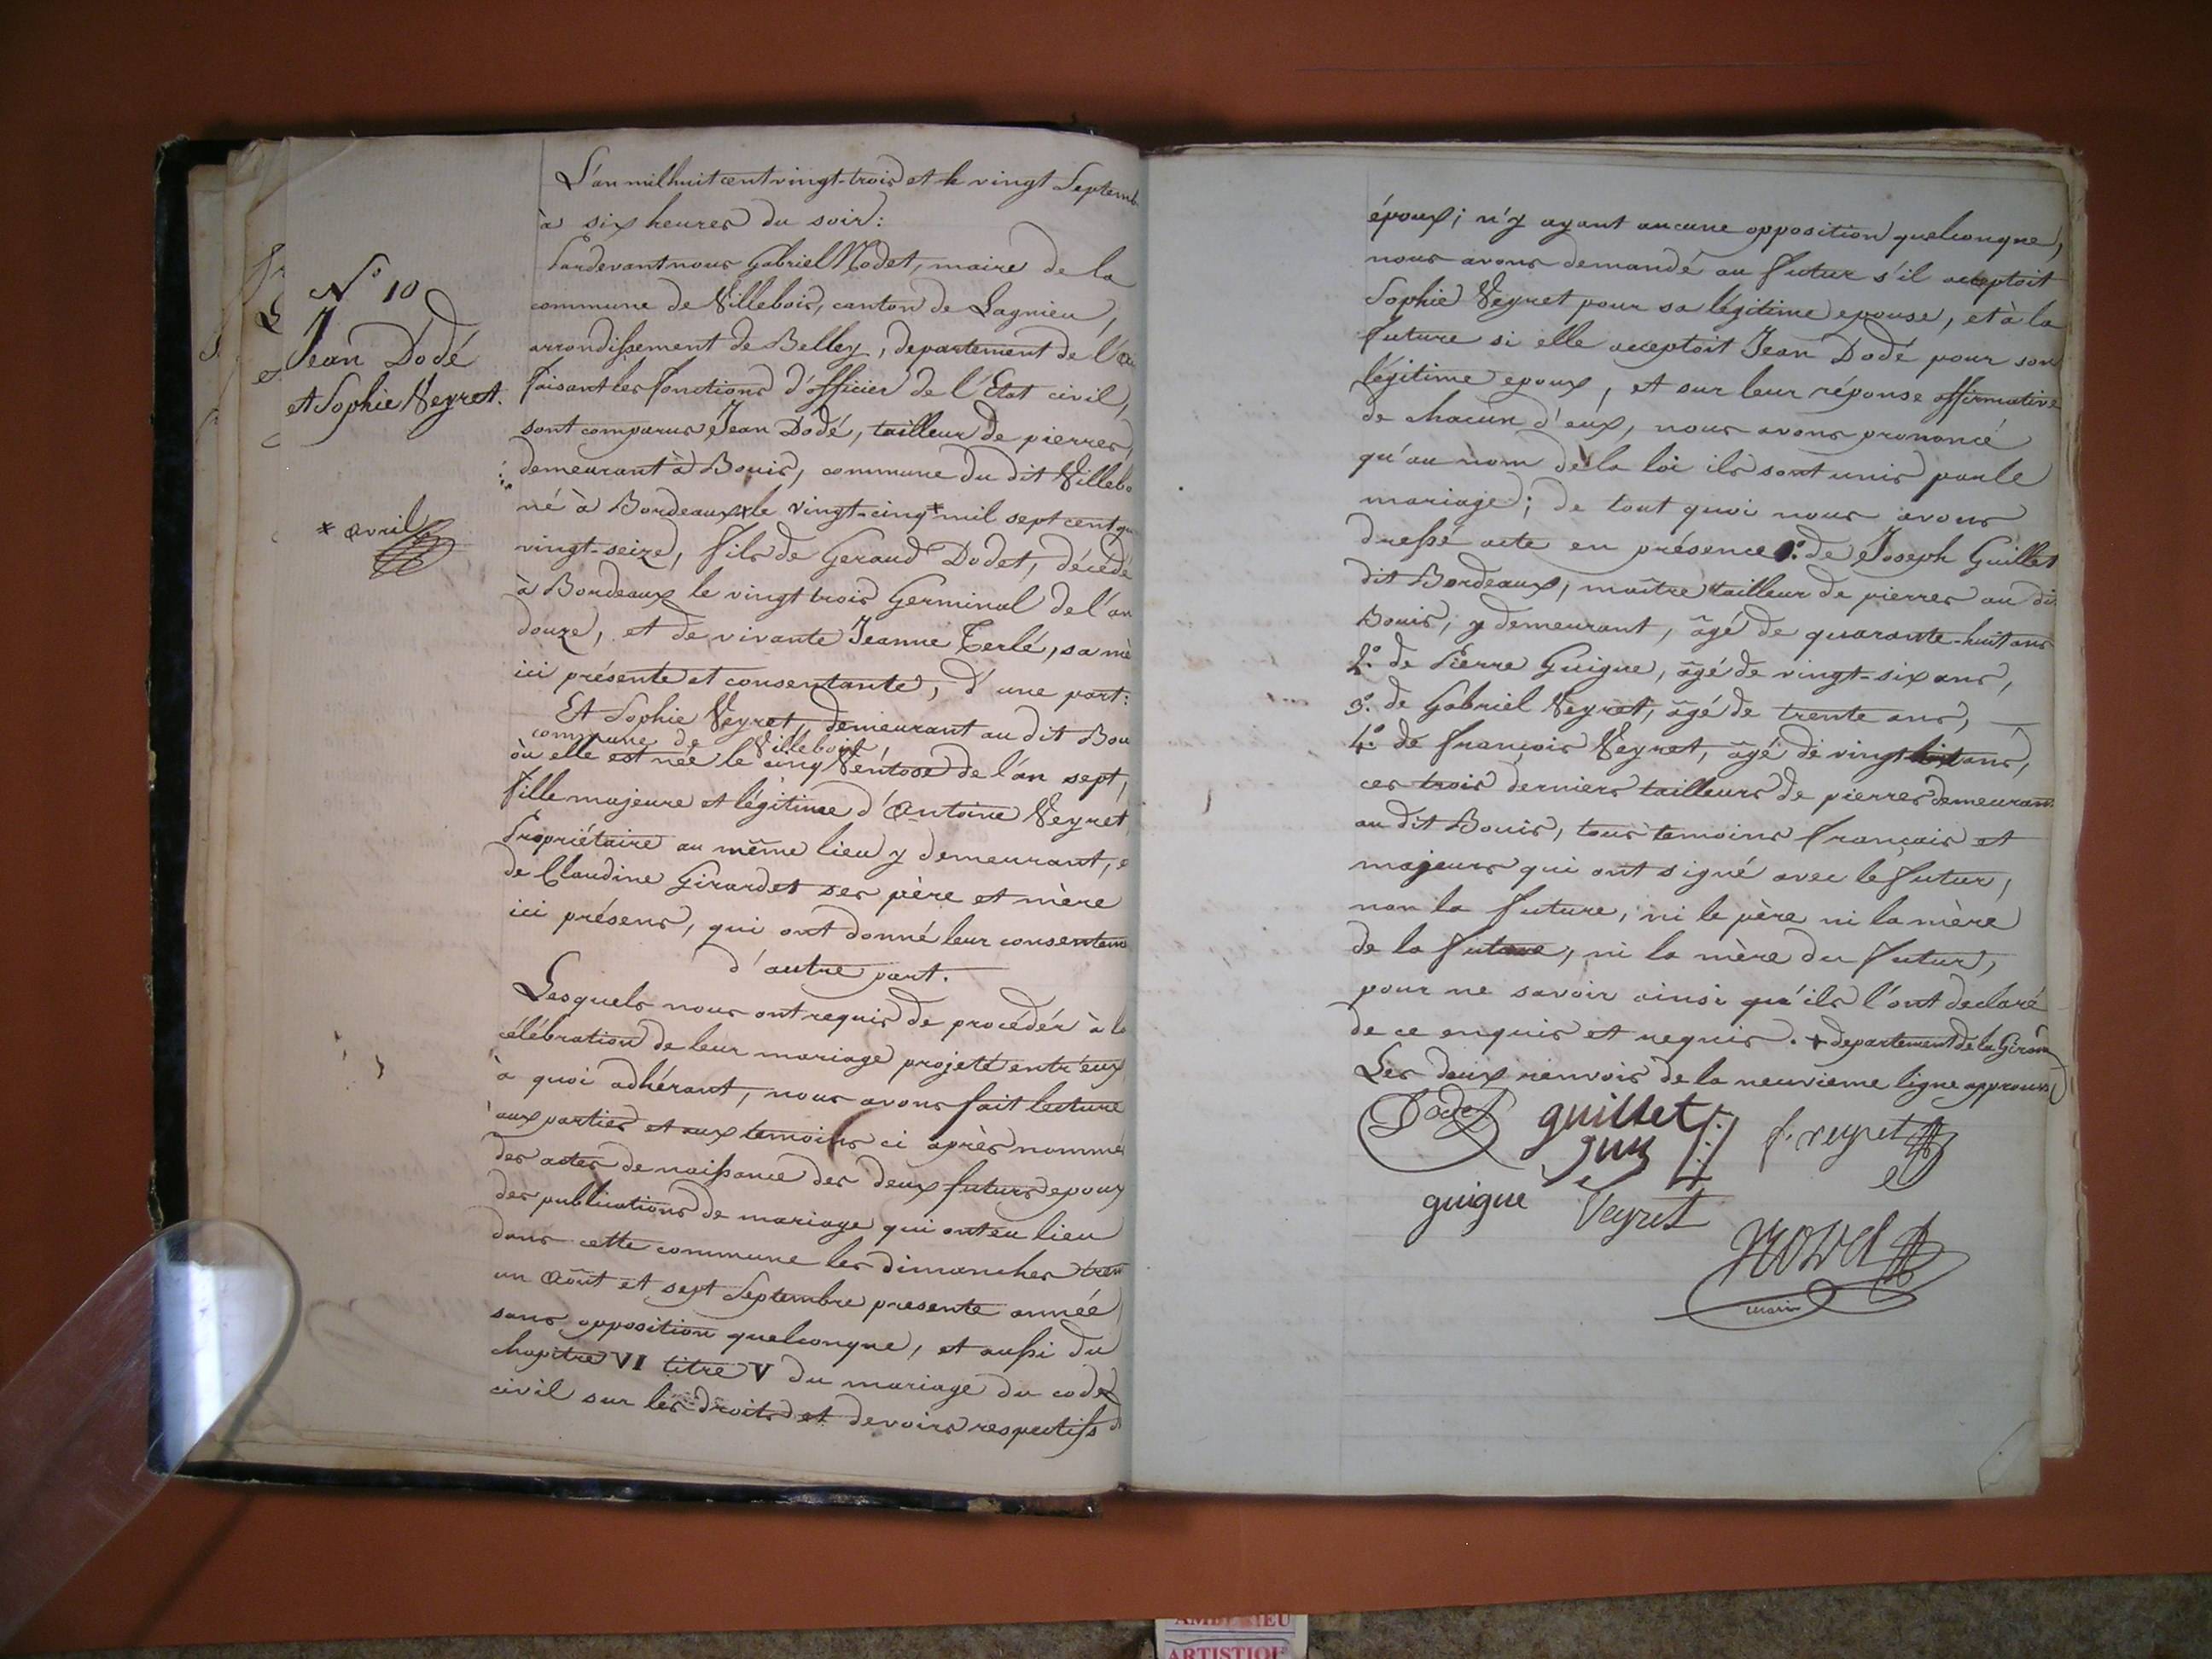 N° 10
Jean Dodé
et Sophie Veyret.
* avril
L'an mil huit cent vingt-trois et le vingt Septemb
à six heures du soir:
Pardevant nous Gabriel Nodet, maire de la
commune de Villebois, canton de Lagnieu,
arrondissement de Belley, departement de l'ai
faisant les fonctions d'officier de l'Etat civil,
sont comparus Jean Dodé, tailleur de pierres,
demeurant à Bouis, commune du dit Villebo
né à Bordeaux + le vingt-cinq * mil sept cent qu
vingt-seize, fils de Geraud Dodet, décédé
à Bordeaux le vingt trois Germinal de l'an
douze, et de vivante Jeanne Terlé, sa mè
ici présente et consentante, d'une part:
Et Sophie Veyret, demeurant au dit Bou
commune de Villebois,
où elle est née le cinq Ventose de l'an sept,
fille majeure et légitime d'Antoine Veyret
Propriétaire au même lieu y demeurant, e
de Claudine Girardet ses père et mère
ici présens, qui ont donné leur consentem
d'autre part.
Lesquels nous ont requis de procéder à la
célébration de leur mariage projeté entr'eux
à quoi adhérant, nous avons fait lecture
aux parties et aux temoins ci après nommés
des actes de naissance des deux futurs epoux
des publications de mariage qui ont eu lieu
dans cette commune les dimanches tren
un Août et sept Septembre presente année
sans opposition quelconque, et aussi du
chapitre VI titre V du mariage du code
civil sur les droits et devoirs respectifs d
époux; n'y ayant aucune opposition quelconque,
nous avons demandé au futur s'il acceptoit
Sophie Veyret pour sa légitime epouse, et à la
future si elle acceptoit Jean Dodé pour son
légitime epoux, et sur leur réponse affirmative
de chacun d'eux, nous avons prononcé
qu'au nom de la loi ils sont unis par le
mariage; de tout quoi nous avons
dressé acte en présence 1°. de Joseph Guillet
dit Bordeaux, maître tailleur de pierres au di
Bouis, y demeurant, âgé de quarante-huit ans
2°. de Pierre Guigue, âgé de vingt-six ans,
3°. de Gabriel Veyret, âgé de trente ans,
4°. de françois Veyret, âgé de vingt ans,
ces trois derniers tailleurs de pierres demeuran
au dit Bouis, tous temoins français et
majeurs qui ont signé avec le futur,
non la future, ni le père ni la mère
de la future, ni la mère du futur,
pour ne savoir ainsi qu'ils l'ont declaré
de ce enquis et requis. + departement de la Giron
Les deux renvois de la neuvieme ligne approuvés
Dodet guillet f. veyret
guigue Veyret
Nodet
maire
AMBERIEU
ARTISTIQUE